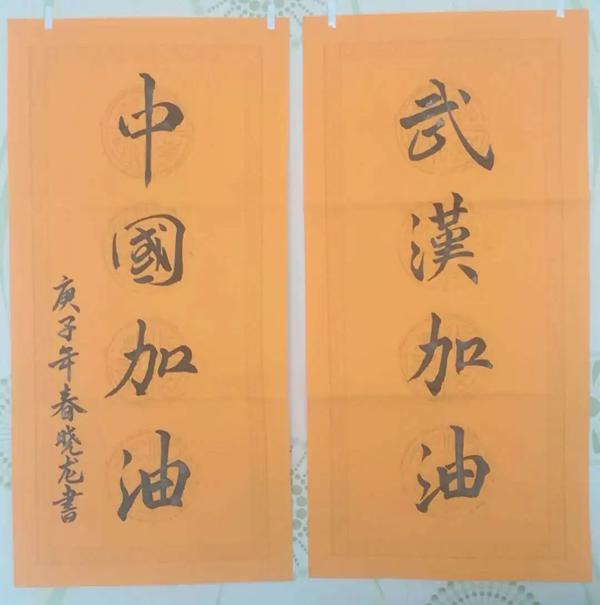 武漢加油
中國加油
庚子年春晓龙書